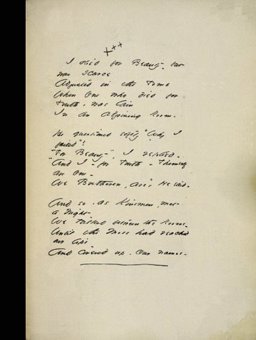 +++
I died for Beauty - but
was Scarce
Adjusted in the Tomb
When One who died for
Truth, was lain
In an Adjoining Room.
He questioned softly "Why I
failed"?
"For Beauty", I replied.
"And I - for Truth - Themself
are One.
We Bretheren, are", He said.
And so, as Kinsmen, met
a Night.
We talked between the Rooms.
Until the Moss had reached
our lips
And covered up - Our names.